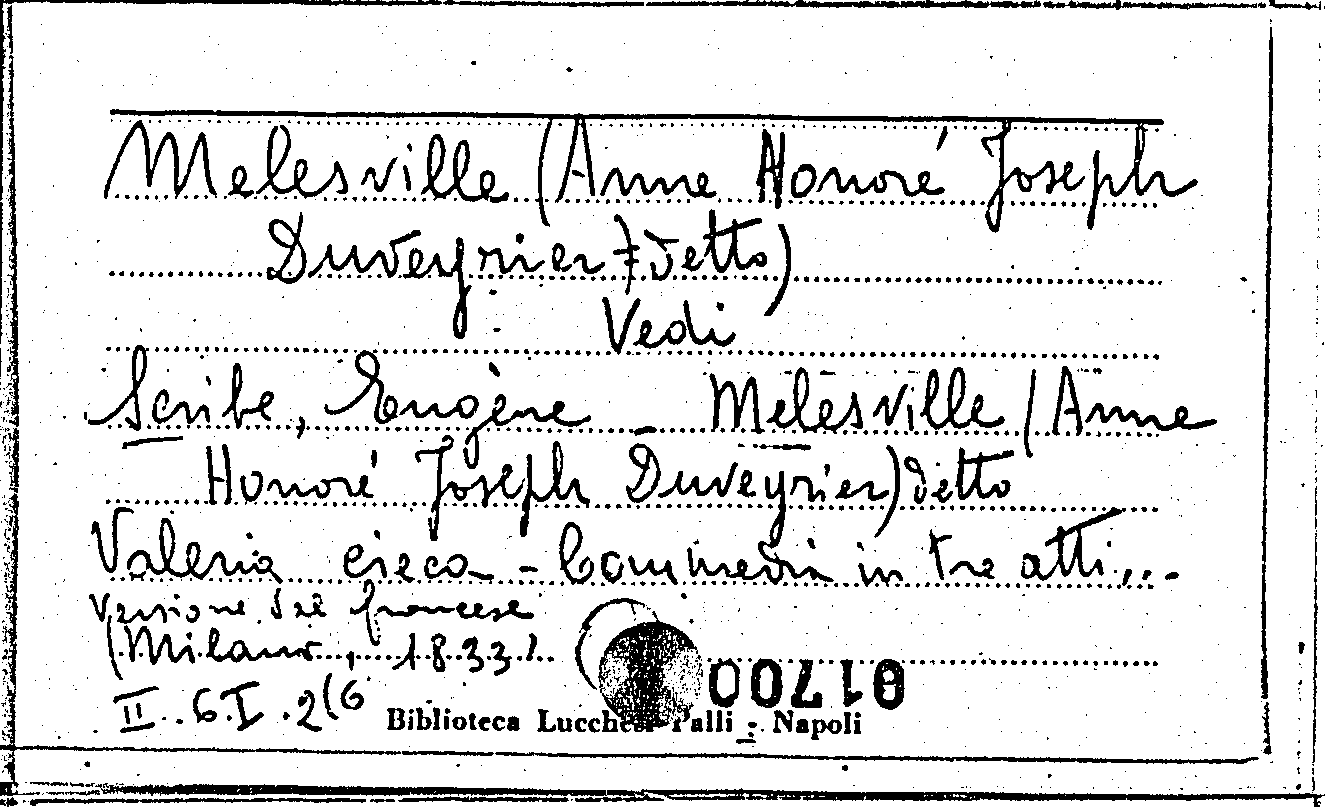 Melesville (Anne Honoré Joseph
Duveyrier) detto)
Vedi
Scribe, Eugène Melesville (Anne
Honoré Joseph Duveyrier) detto
Valeria cieca - Commedia in tre atti...
versione dal francese
(Milano, 1833)
II. 6. I. 2(6
01700
Biblioteca Lucchesi Palli - Napoli